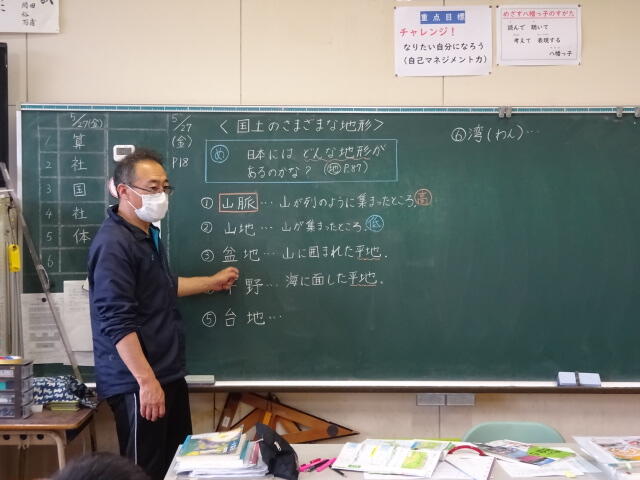 重点目標
チャレンジ！
なりたい自分になろう
(自己マネジメント力)
めざす八幡っ子のすがた
読んで 聴いて
考えて 表現する
八幡っ子
5/27(金)
1 算
2 社
3 国
4 社
5 体
6
5/27
(金)
P18
〈国土のさまざまな地形〉
め 日本には どんな地形が
あるのかな？ (地P.87)
① 山脈… 山が列のように集まったところ. 高
② 山地… 山が集まったところ. 低
③ 盆地… 山に囲まれた平地.
野… 海に面した平地.
⑤ 台地…
⑥ 湾(わん)…